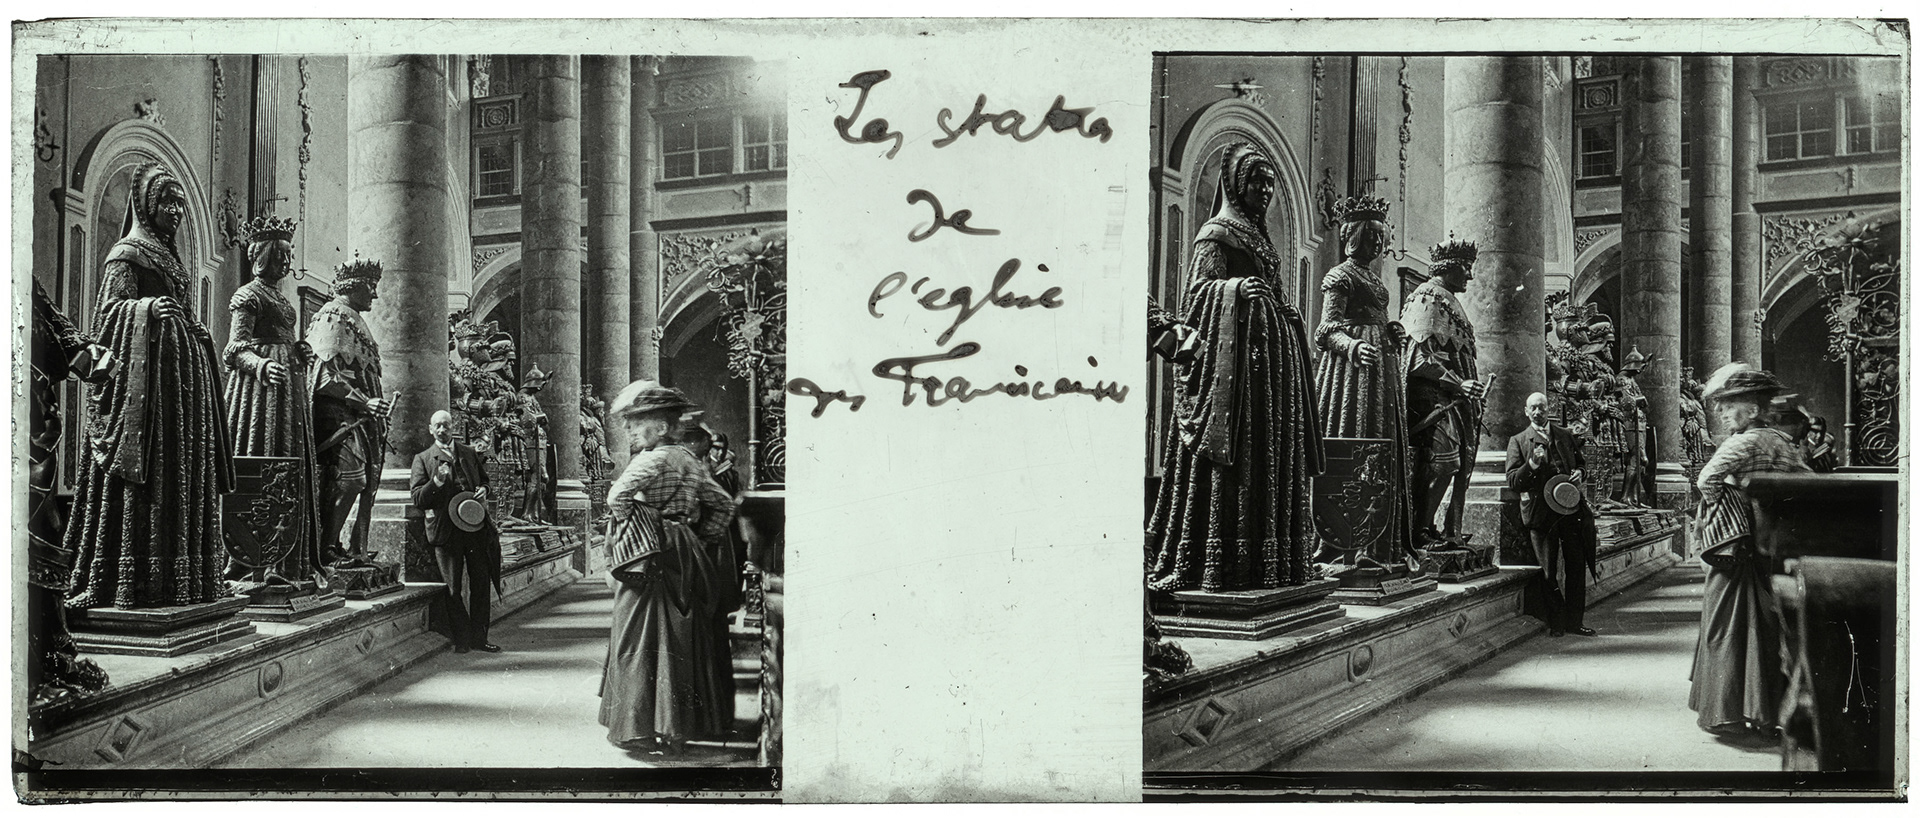 Les statues
de
l'eglise
des Franciscains